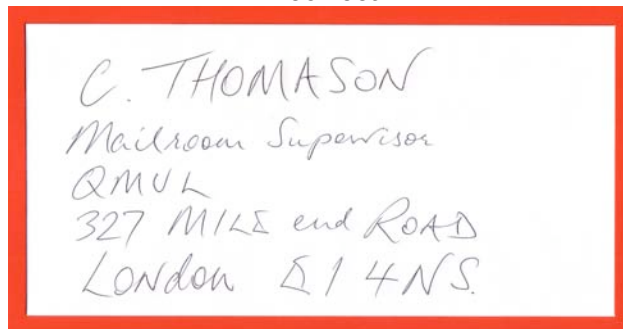 C. THOMASON
Mailroom Supervisor
QMUL
327 MILE end ROAD
LONdon E1 4NS.